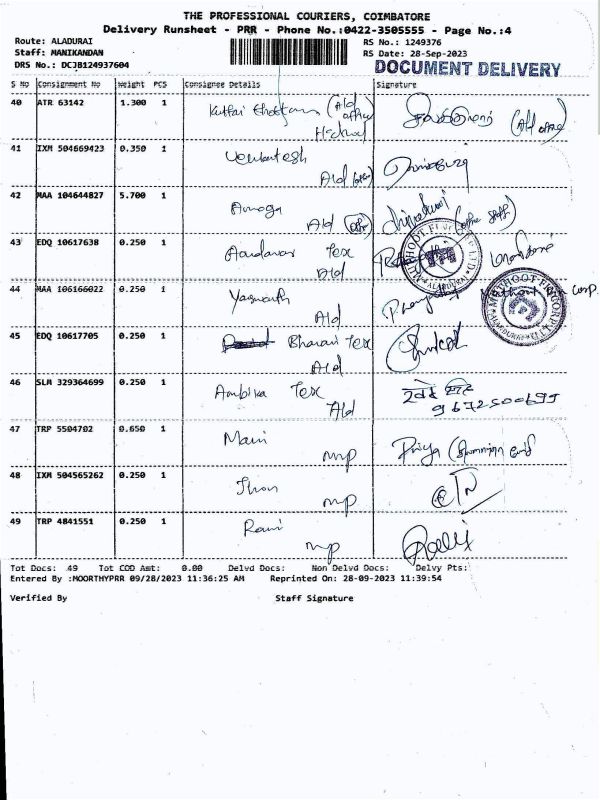 THE PROFESSIONAL COURIERS, COIMBATORE
Delivery Runsheet - PRR - Phone No.:0422-3505555 - Page No.:4
Route: ALADURAI
RS No.: 1249376
Staff: MANIKANDAN
RS Date: 28-Sep-2023
DRS No.: DCJB124937604
DOCUMENT DELIVERY
S No Consignment No Weight PCS Consignee Details Signature
40 ATR 63142 1.300 1 (Ald office)
(Ald office)
41 IXM 504669423 0.350 1 Venkatesh
Ald
42 MAA 104644827 5.700 1 Amoga
Ald (office staff)
43 EDQ 10617638 0.250 1 Aandavar Tex
Ald
44 MAA 166166022 0.250 1 Yaswanth
Ald
45 EDQ 10617705 0.250 1 Bharani Tex
Ald
46 SLM 329364699 0.250 1 Ambika Tex
Ald 9672500699
47 TRP 5504702 0.650 1 Mani Priya
mp
48 IXM 504565262 0.250 1 Jhon
mp
49 TRP 4841551 0.250 1 Rani
mp
Tot Docs: 49 Tot COD Amt: 0.00 Delvd Docs: Non Delvd Docs: Delvy Pts:
Entered By :MOORTHYPRR 09/28/2023 11:36:25 AM Reprinted On: 28-09-2023 11:39:54
Verified By Staff Signature